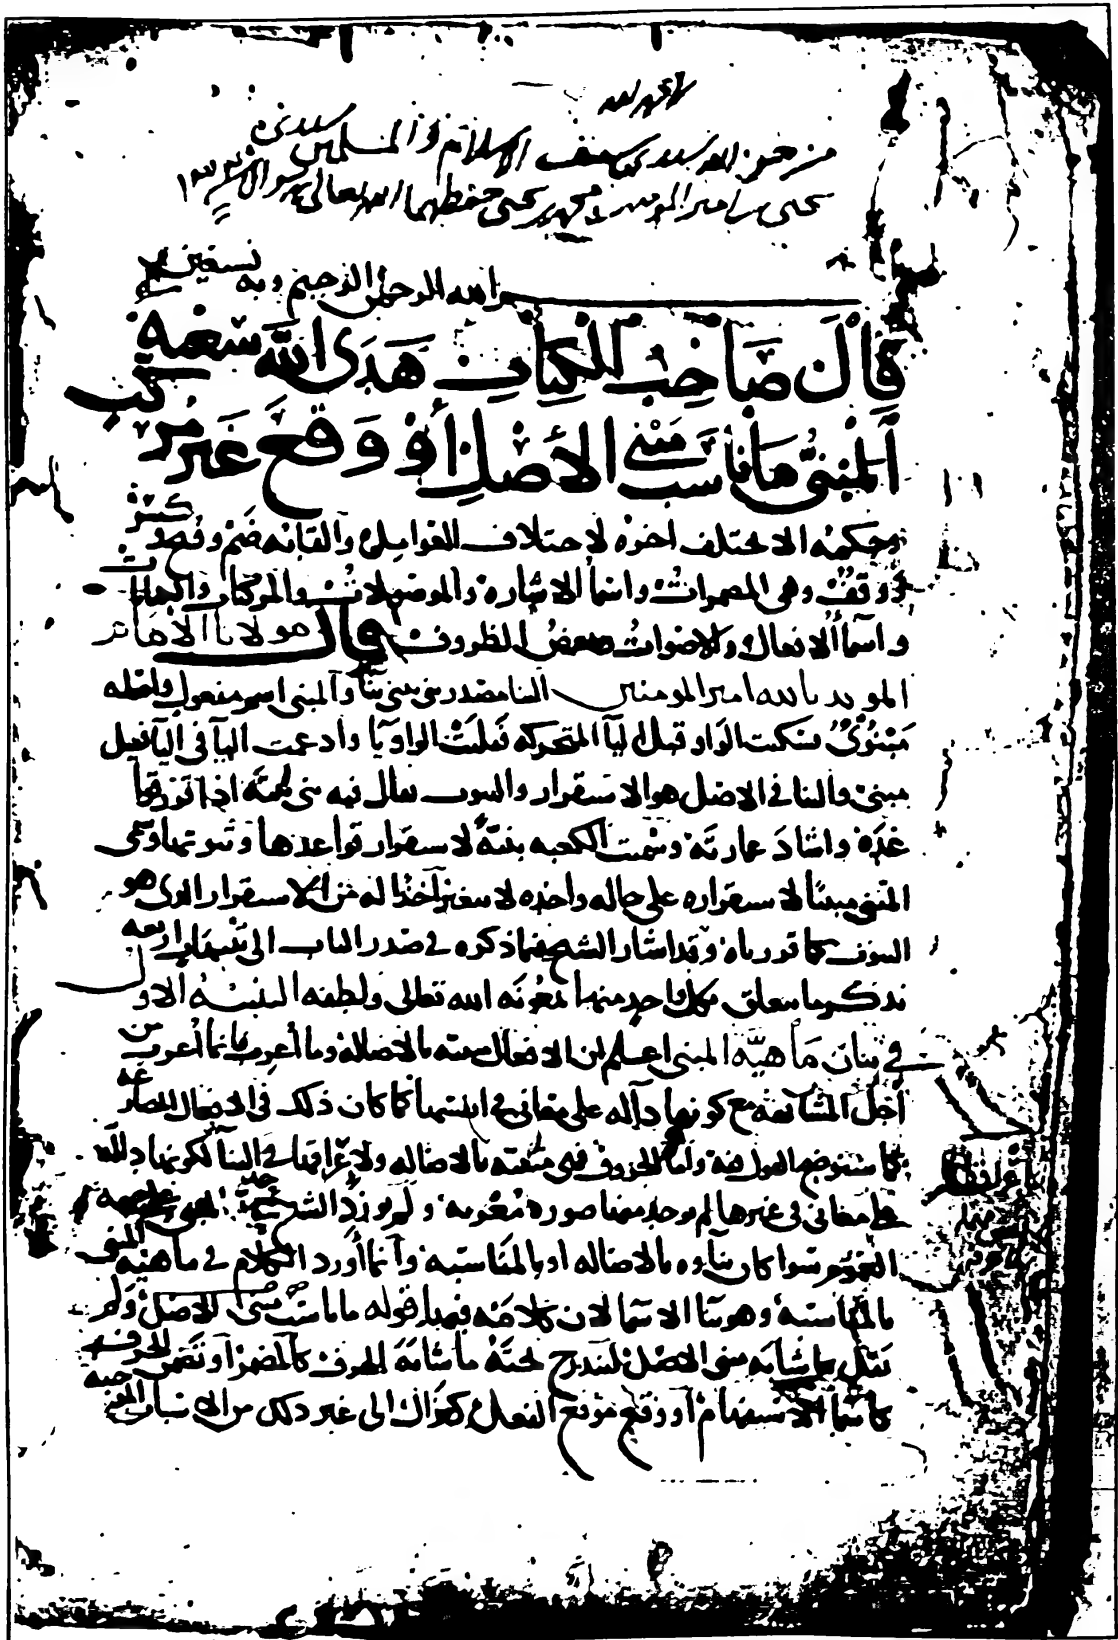 الحمد لله
من خزانة سيدي سيف الاسلام والمسلمين سيدي
يحيى بن امير المومنين محمد بن يحيى حفظهما الله تعالى
بسم الله الرحمن الرحيم وبه نستعين
قال صاحب الكتاب هدى الله سعيه
المبني ما ناسب مبني الأصل أو وقع غير مركب
وحكمه الا يختلف اخره لاختلاف العوامل والقابه ضم وفتح وكسر
ووقف وهي المضمرات واسما الاشاره والموصولات والمركبات والكنايات
واسما الافعال والاصوات وبعض الظروف قال مولانا الامام
المويد بالله امير المومنين البنا مصدر بنى يبني بنآ والمبني اسم مفعول واصله
مبنوي سكنت الواو قبل اليآ المتحركه فقلبت الواو يا وادغمت اليا في اليا فقيل
مبني والبنا في الاصل هو الاستقرار والثبوت يقال فيه بنى بيته اذا قرر قواعده
واشاد عمارته وسميت الكعبه بنيه لاستقرار قواعدها وثبوتها وسمي
المبني مبنيا لاستقراره على حاله واحده لا يتغير اخذا له من الاستقرار الذي هو
الثبوت كما قررناه وقد اشار الشيخ فيما ذكره في صدر الباب الى تنبيهات اربعه
نذكر ما يتعلق بكل واحد منها بمعونه الله تعالى ولطفه التنبيه الاول
في بيان ماهيه المبني اعلم ان الافعال مبنيه بالاصاله وما أعرب منها فانما أعرب من
أجل المشابهه مع كونها داله على معاني في انفسها كما كان ذلك في الافعال المضارعه
كما سنوضح القول فيه وأما الحروف فهي مبنيه بالاصاله ولاعراقها في البنآ لكونها داله
على معاني في غيرها لم يوجد منها صوره معربه ولم يورد الشيخ المبني على جهه
العموم سوا كان بناوه بالاصاله او بالمناسبه وانما أورد الكلام في ماهيه المبني
بالمناسبه وهو بنا الاسما لان كلامه فيها فقوله ما ناسب مبني الاصل ولم
يقل ما شابه مبني الاصل ليندرج تحته ما شابه الحرف كالمضمر او تضمن الحرف
كاسما الاستفهام او وقع موقع الفعل كنزال الى غير ذلك من الاسباب الموجبه